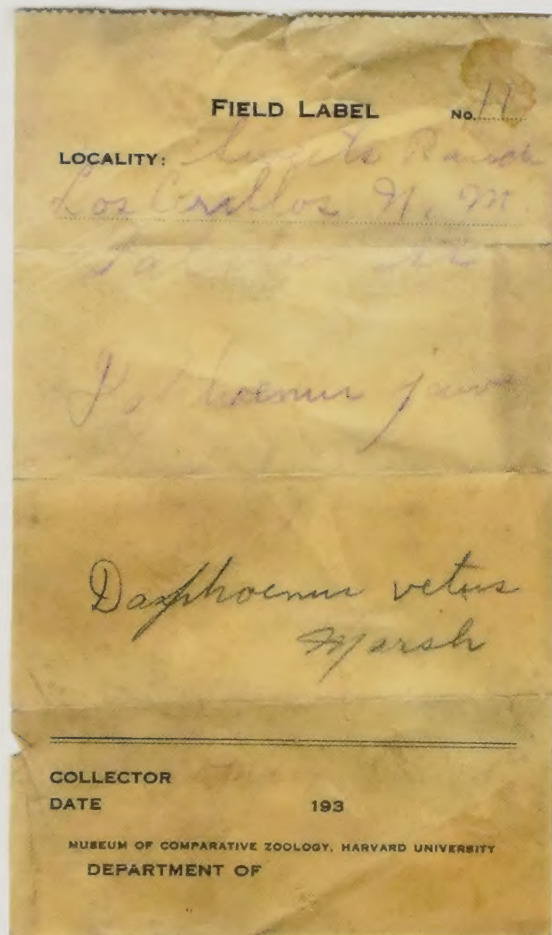 FIELD LABEL No. 17
LOCALITY: Sweets Ranch
Los Cerillos N. M.
jaw
Daphoenus vetus
Marsh
COLLECTOR
DATE 193
MUSEUM OF COMPARATIVE ZOOLOGY, HARVARD UNIVERSITY
DEPARTMENT OF